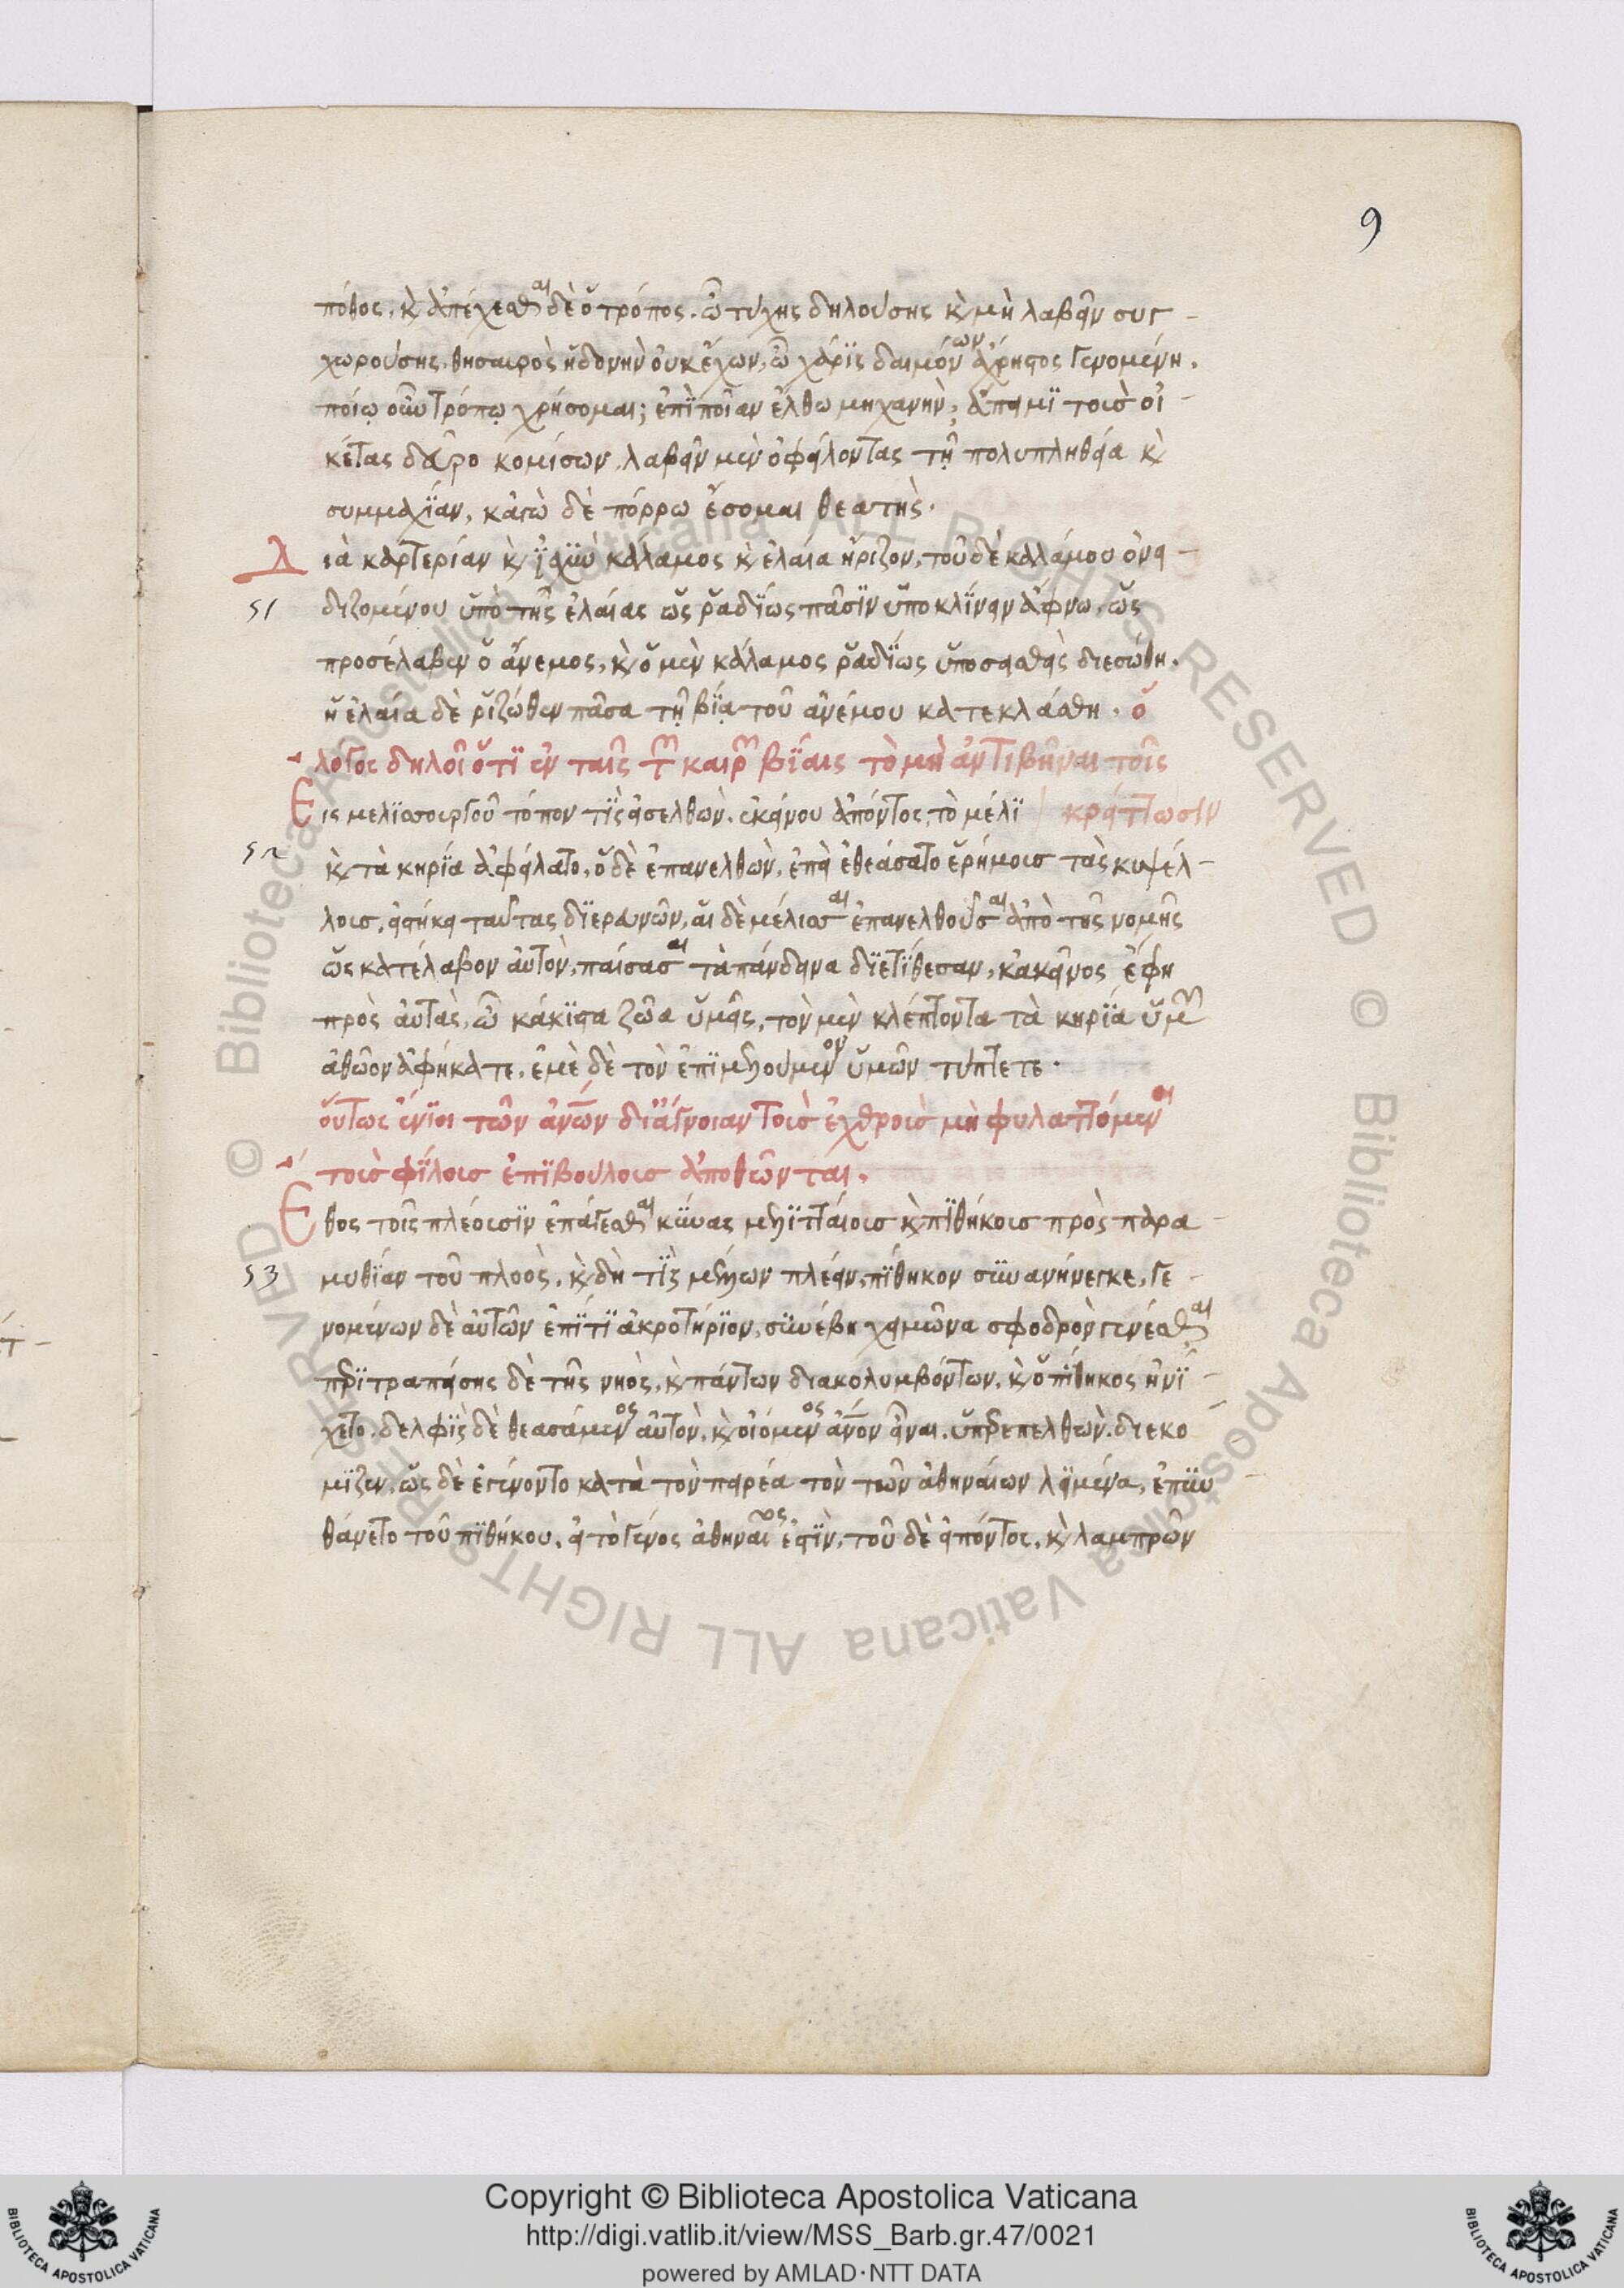 9
πόθος. κ ἀπέχεσθαι δὲ ὁ τρόπος. ὦ τύχης δηλούσης κ μὴ λαβεῖν συγ-
χωρούσης. θησαυρὸς ἡδονὴν οὐκ ἔχων, ὦ χάρις δαιμόνων ἄχρηστος γενομένη.
ποίῳ οὖν τρόπῳ χρήσομαι; ἐπὶ ποίαν ἔλθω μηχανὴν; ἄπειμι τοὺσ οἰ-
κέτας δεῦρο κομίσων, λαβεῖν μὲν ὀφείλοντας τῇ πολυπληθείᾳ κ
συμμαχίαν, κἀγὼ δὲ πόρρω ἔσομαι θεατὴς.
Διὰ καρτερίαν κ ἰσχὺν κάλαμος κ ἐλαία ἤριζον, τοῦ δὲ καλάμου ὀνει-
51 διζομένου ὑπὸ τῆς ἐλαίας ὡς ῥαδίως πᾶσιν ὑποκλίνειν ἄφνω. ὡς
προσέλαβεν ὁ ἄνεμος, κ ὁ μὲν κάλαμος ῥαδίως ὑποσεισθεὶς διεσώθη.
ἡ ἐλαία δὲ ῥιζώθεν πᾶσα τῇ βίᾳ τοῦ ἀνέμου κατεκλάσθη. ὁ
λόγος δηλοῖ ὅτι ἐν ταῖς τῶν καιρῶν βίαις τὸ μὴ ἀντιβῆναι τοῖς
κρείττωσιν
Εἰς μελισσουργοῦ τόπον τὶς εἰσελθὼν. ἐκείνου ἀπόντος, τὸ μέλι
52 κ τὰ κηρία ἀφείλατο, ὁ δὲ ἐπανελθὼν, ἐπεὶ ἐθεάσατο ἐρήμουσ τὰς κυψέλ-
λουσ, εἱστήκει ταύτας διερευνῶν, αἱ δὲ μέλισσαι ἐπανελθοῦσαι ἀπὸ τῆς νομῆς
ὡς κατέλαβον αὐτὸν, παίσασαι τὰ πάνδεινα διετίθεσαν, κἀκεῖνος ἔφη
πρὸς αὐτὰς, ὦ κάκιστα ζῶα ὑμεῖς, τὸν μὲν κλέπτοντα τὰ κηρία ὑμῶν
ἀθῶον ἀφήκατε. ἐμὲ δὲ τὸν ἐπιμελούμενον ὑμῶν τύπτετε.
οὕτως ἔνιοι τῶν ἀνων δι ἄγνοιαν τοὺσ ἐχθροὺσ μὴ φυλαττόμενοι
τοὺσ φίλουσ ἐπιβούλουσ ἀποθῶνται.
Εθος τοῖς πλέουσιν ἐπάγεσθαι κύνας μελιταίουσ κ πιθήκουσ πρὸς παρα-
53 μυθίαν τοῦ πλοὸς. κ δὴ τὶς μέλλων πλέειν, πίθηκον συνανήνεγκε, γε-
νομένων δὲ αὐτῶν ἐπί τι ἀκροτήριον, συνέβη χειμῶνα σφοδρὸν γενέσθαι
περιτραπείσης δὲ τῆς νηὸς, κ πάντων διακολυμβόντων, κ ὁ πίθηκος ἠνί-
χετο. δελφὶς δὲ θεασάμενος αὐτὸν, κ οἰόμενος ἀνον εἶναι. ὑπερεπελθὼν. διεκο-
μιζεν, ὡς δὲ ἐγένοντο κατὰ τὸν παρέα τὸν τῶν ἀθηναίων λειμένα, ἐπυν-
θάνετο τοῦ πιθήκου, εἰ τὸ γένος ἀθηναῖος ἐστὶν, τοῦ δὲ εἰπόντος, κ λαμπρῶν
Copyright © Biblioteca Apostolica Vaticana
http://digi.vatlib.it/view/MSS_Barb.gr.47/0021
powered by AMLAD·NTT DATA
BIBLIOTECA APOSTOLICA VATICANA
BIBLIOTECA APOSTOLICA VATICANA
© Biblioteca Apostolica Vaticana ALL RIGHTS RESERVED © Biblioteca Apostolica Vaticana ALL RIGHTS RESERVED